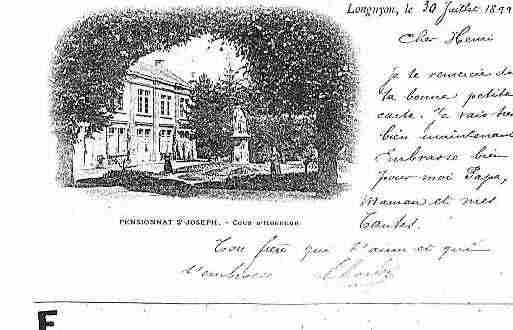 Longuyon, le 30 Juillet 1899
Cher Henri
Je te remercie de
ta bonne petite
carte. Je vais très
bien maintenant
Embrasse bien
pour moi Papa,
Maman et mes
Tantes.
PENSIONNAT St JOSEPH. - COUR D'HONNEUR
Ton frère qui t'aime et qui
t'embrasse
E